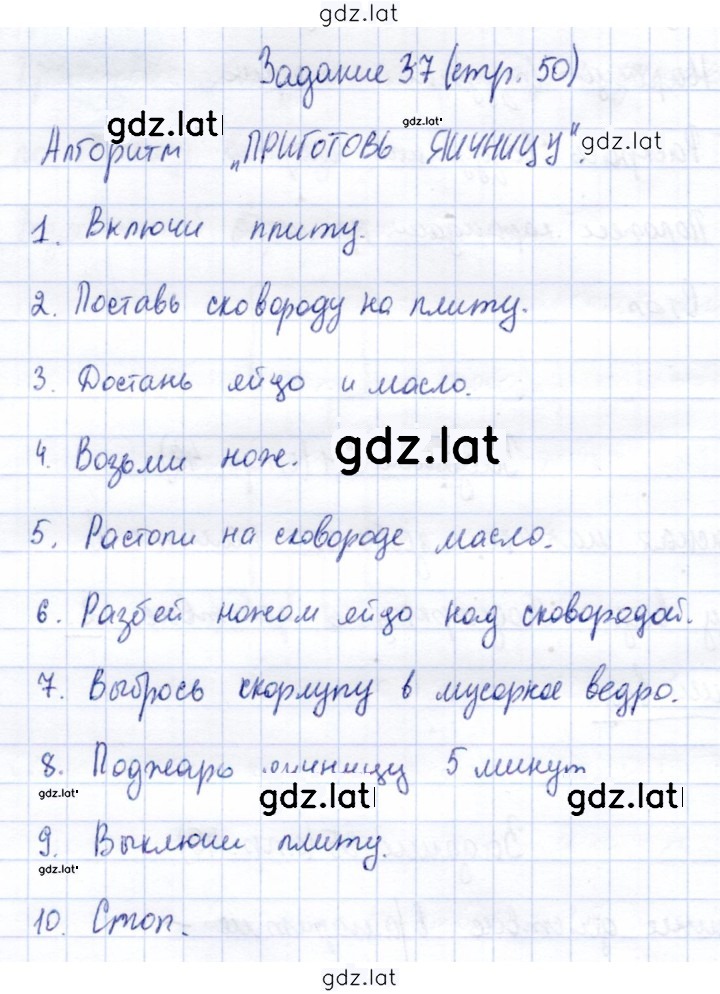 gdz.lat
Задание 37 (стр. 50)
gdz.lat
gdz.lat
Алгоритм „ПРИГОТОВЬ ЯИЧНИЦУ".
gdz.lat
1. Включи плиту.
2. Поставь сковороду на плиту.
3. Достань яйцо и масло.
4. Возьми нож.
gdz.lat
5. Растопи на сковороде масло.
6. Разбей ножом яйцо над сковородой.
7. Выбрось скорлупу в мусорное ведро.
8. Поджарь яичницу 5 минут
gdz.lat
gdz.lat
gdz.lat
9. Выключи плиту.
gdz.lat
10. Стоп.
gdz.lat